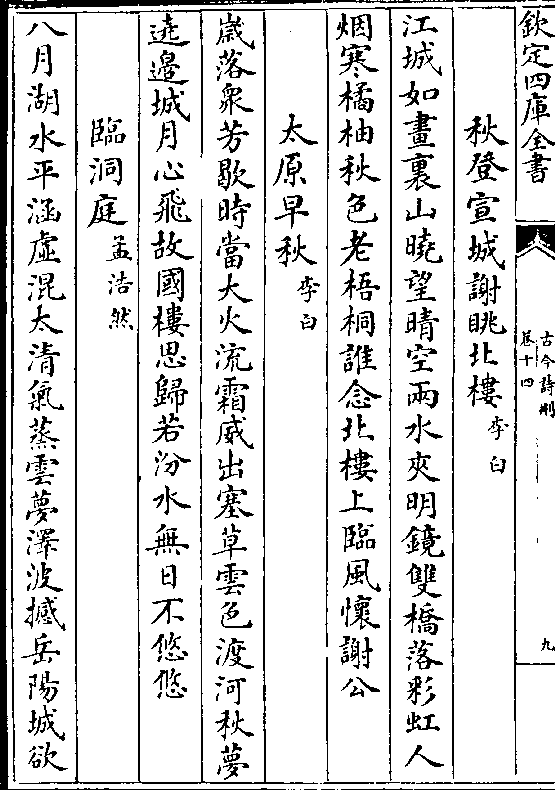 欽定四庫全書
古今詩刪
卷十四
九
秋登宣城謝眺北樓 李白
江城如畫裏山曉望晴空兩水夾明鏡雙橋落彩虹人
烟寒橘柚秋色老梧桐誰念北樓上臨風懷謝公
太原早秋 李白
嵗落衆芳歇時當大火流霜威出塞草雲色渡河秋夢
遶邊城月心飛故國樓思歸若汾水無日不悠悠
臨洞庭 孟浩然
八月湖水平涵虛混太清氣蒸雲夢澤波撼岳陽城欲